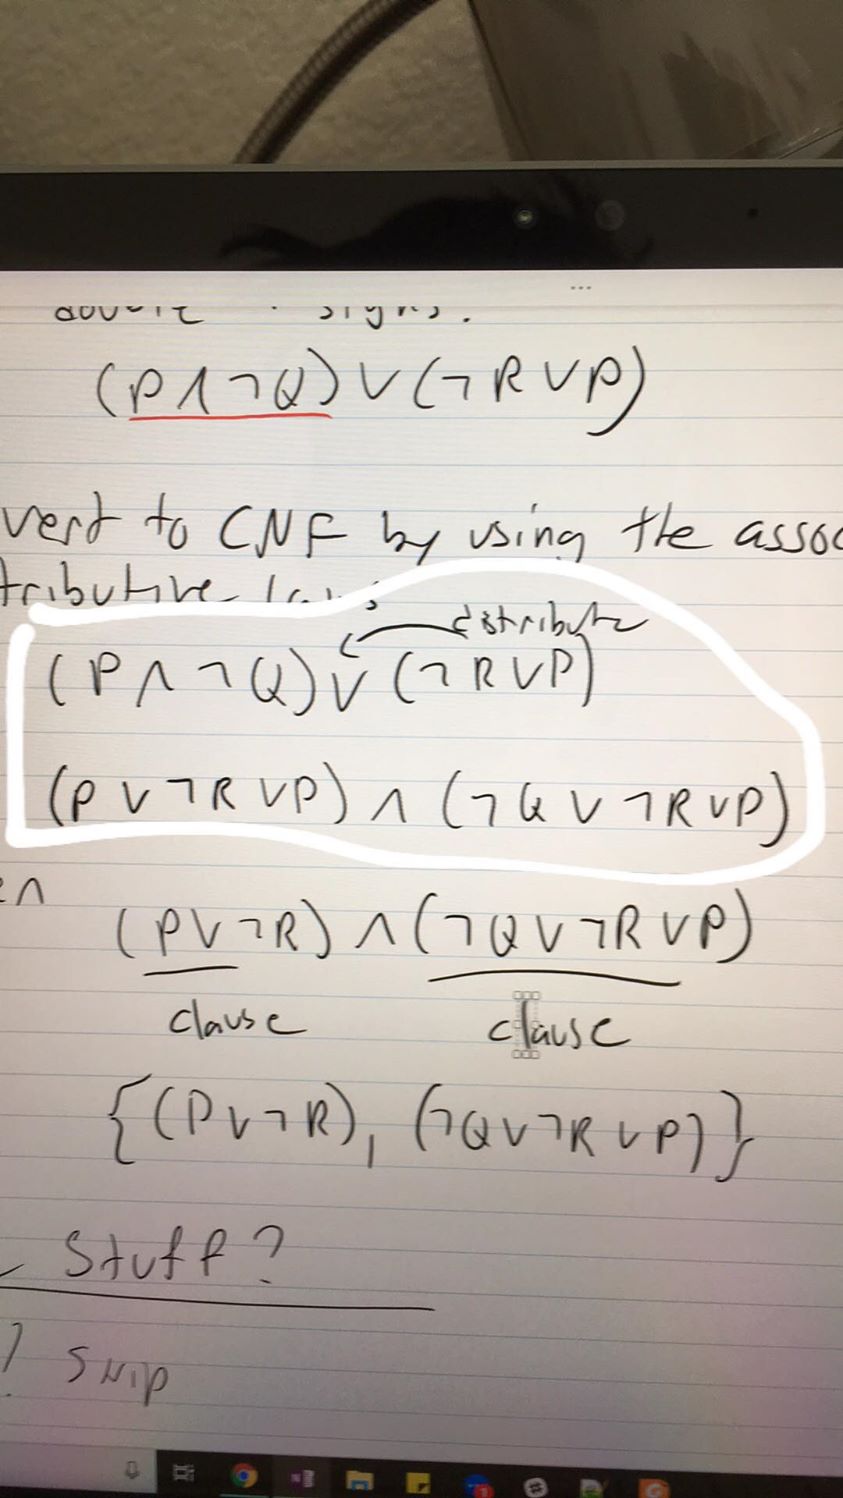 signs.
(P∧¬Q)∨(¬R∨P)
vert to CNF by using the assoc
tributive
distribute
(P∧¬Q)∨(¬R∨P)
(P∨¬R∨P)∧(¬Q∨¬R∨P)
en
(P∨¬R)∧(¬Q∨¬R∨P)
clause clause
{(P∨¬R), (¬Q∨¬R∨P)}
Stuff?
? snip